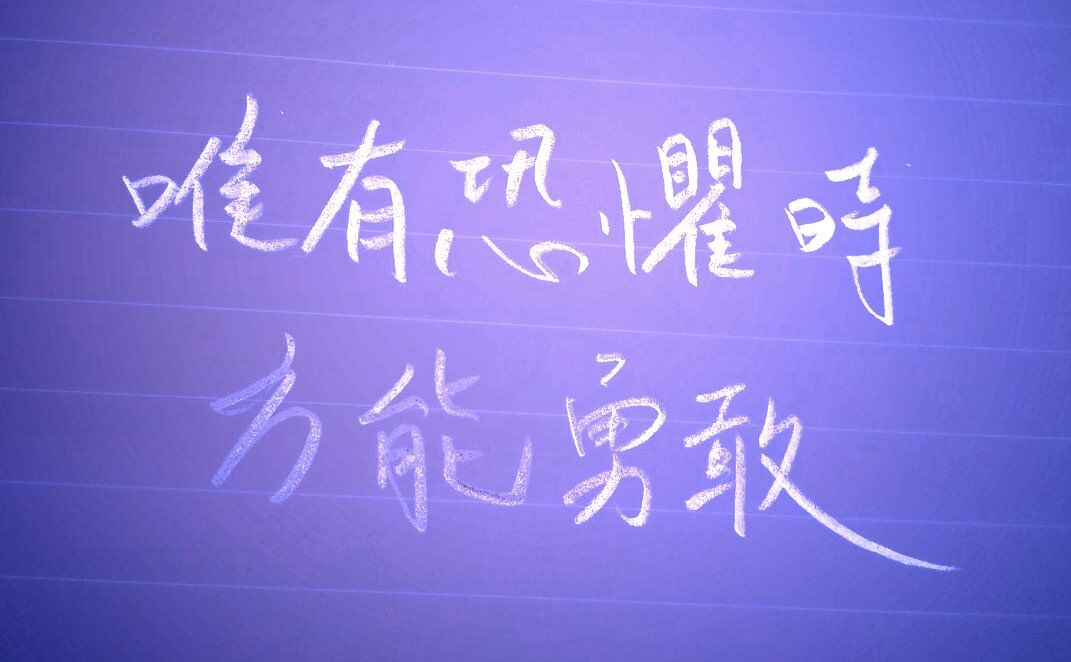 唯有恐懼時
方能勇敢